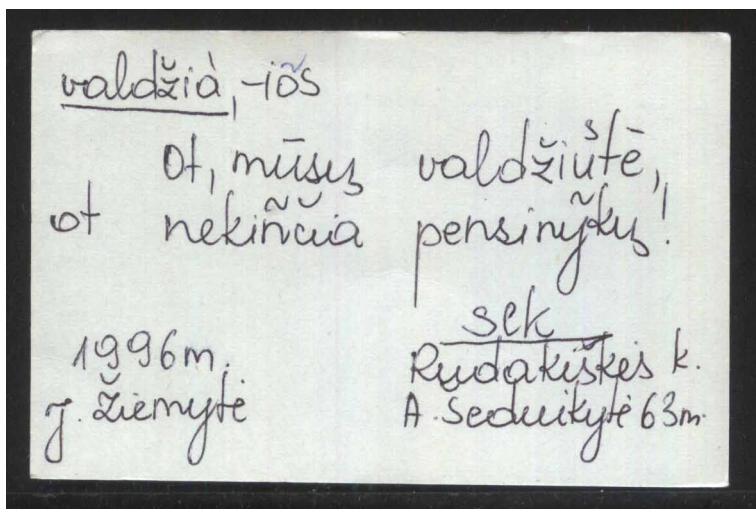 valdžià, -iõs
Ot, mūsų valdžiutė,
ot nekiñčia pensinỹkų!
sek
1996m. Rudakiškės k.
J. Žiemytė A. 63m.